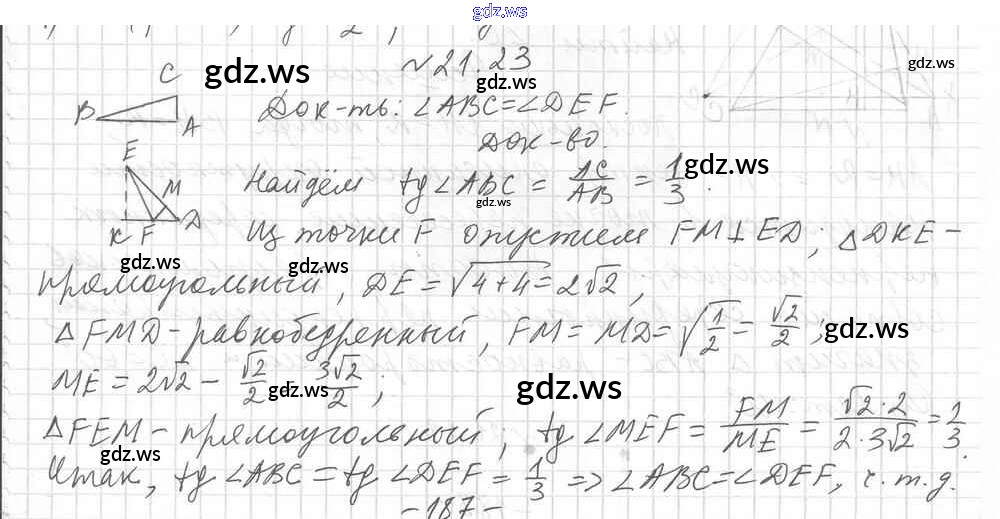 gdz.ws
№21.23
gdz.ws
gdz.ws
C
B
A
Док-ть: ∠ABC=∠DEF.
Док-во.
E
M
K F D
Найдём tg∠ABC = AC/AB = 1/3.
gdz.ws
gdz.ws
Из точки F опустим FM⊥ED; △DKE-
gdz.ws
gdz.ws
прямоугольный, DE=√(4+4)=2√2;
△FMD-равнобедренный, FM=MD=√(1/2)=√2/2;
gdz.ws
ME=2√2-√2/2=3√2/2;
gdz.ws
gdz.ws
△FEM-прямоугольный, tg∠MEF=FM/ME=√2·2/2·3√2=1/3.
gdz.ws
Итак, tg∠ABC=tg∠DEF=1/3=>∠ABC=∠DEF, ч.т.д.
-187-